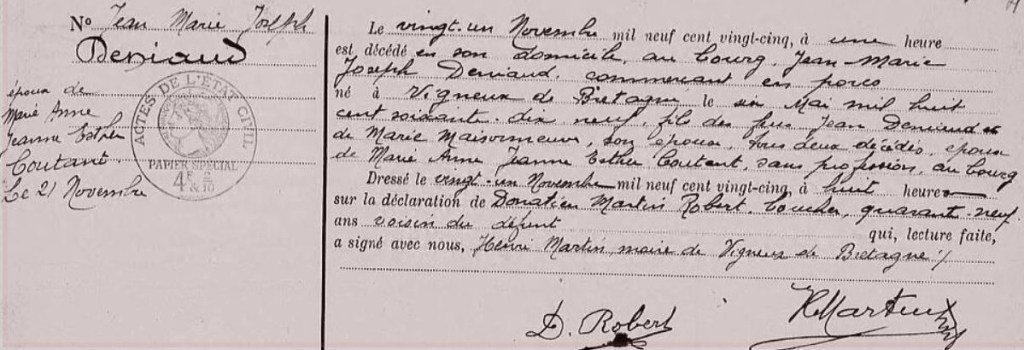 N° Jean Marie Joseph
Deniaud
époux de
Marie Anne
Jeanne Esther
Coutant
Le 21 Novembre
ACTES DE L'ÉTAT CIVIL
PAPIER SPÉCIAL
4F 2/10
Le vingt-un Novembre mil neuf cent vingt-cinq, à une heure
est décédé en son domicile, au bourg, Jean-Marie
Joseph Deniaud, commercant en porcs
né à Vigneux de Bretagne le six Mai mil huit
cent soixante-dix neuf, fils des feus Jean Deniaud et
de Marie Maisonneuve, son épouse, tous deux décédés, époux
de Marie Anne Jeanne Esther Coutant, sans profession, au bourg
Dressé le vingt-un Novembre mil neuf cent vingt-cinq, à huit heures
sur la déclaration de Donatien Martin Robert, boucher, quarante-neuf
ans voisin du défunt qui, lecture faite,
a signé avec nous, Henri Martin maire de Vigneux de Bretagne ./
D. Robert
HMartin